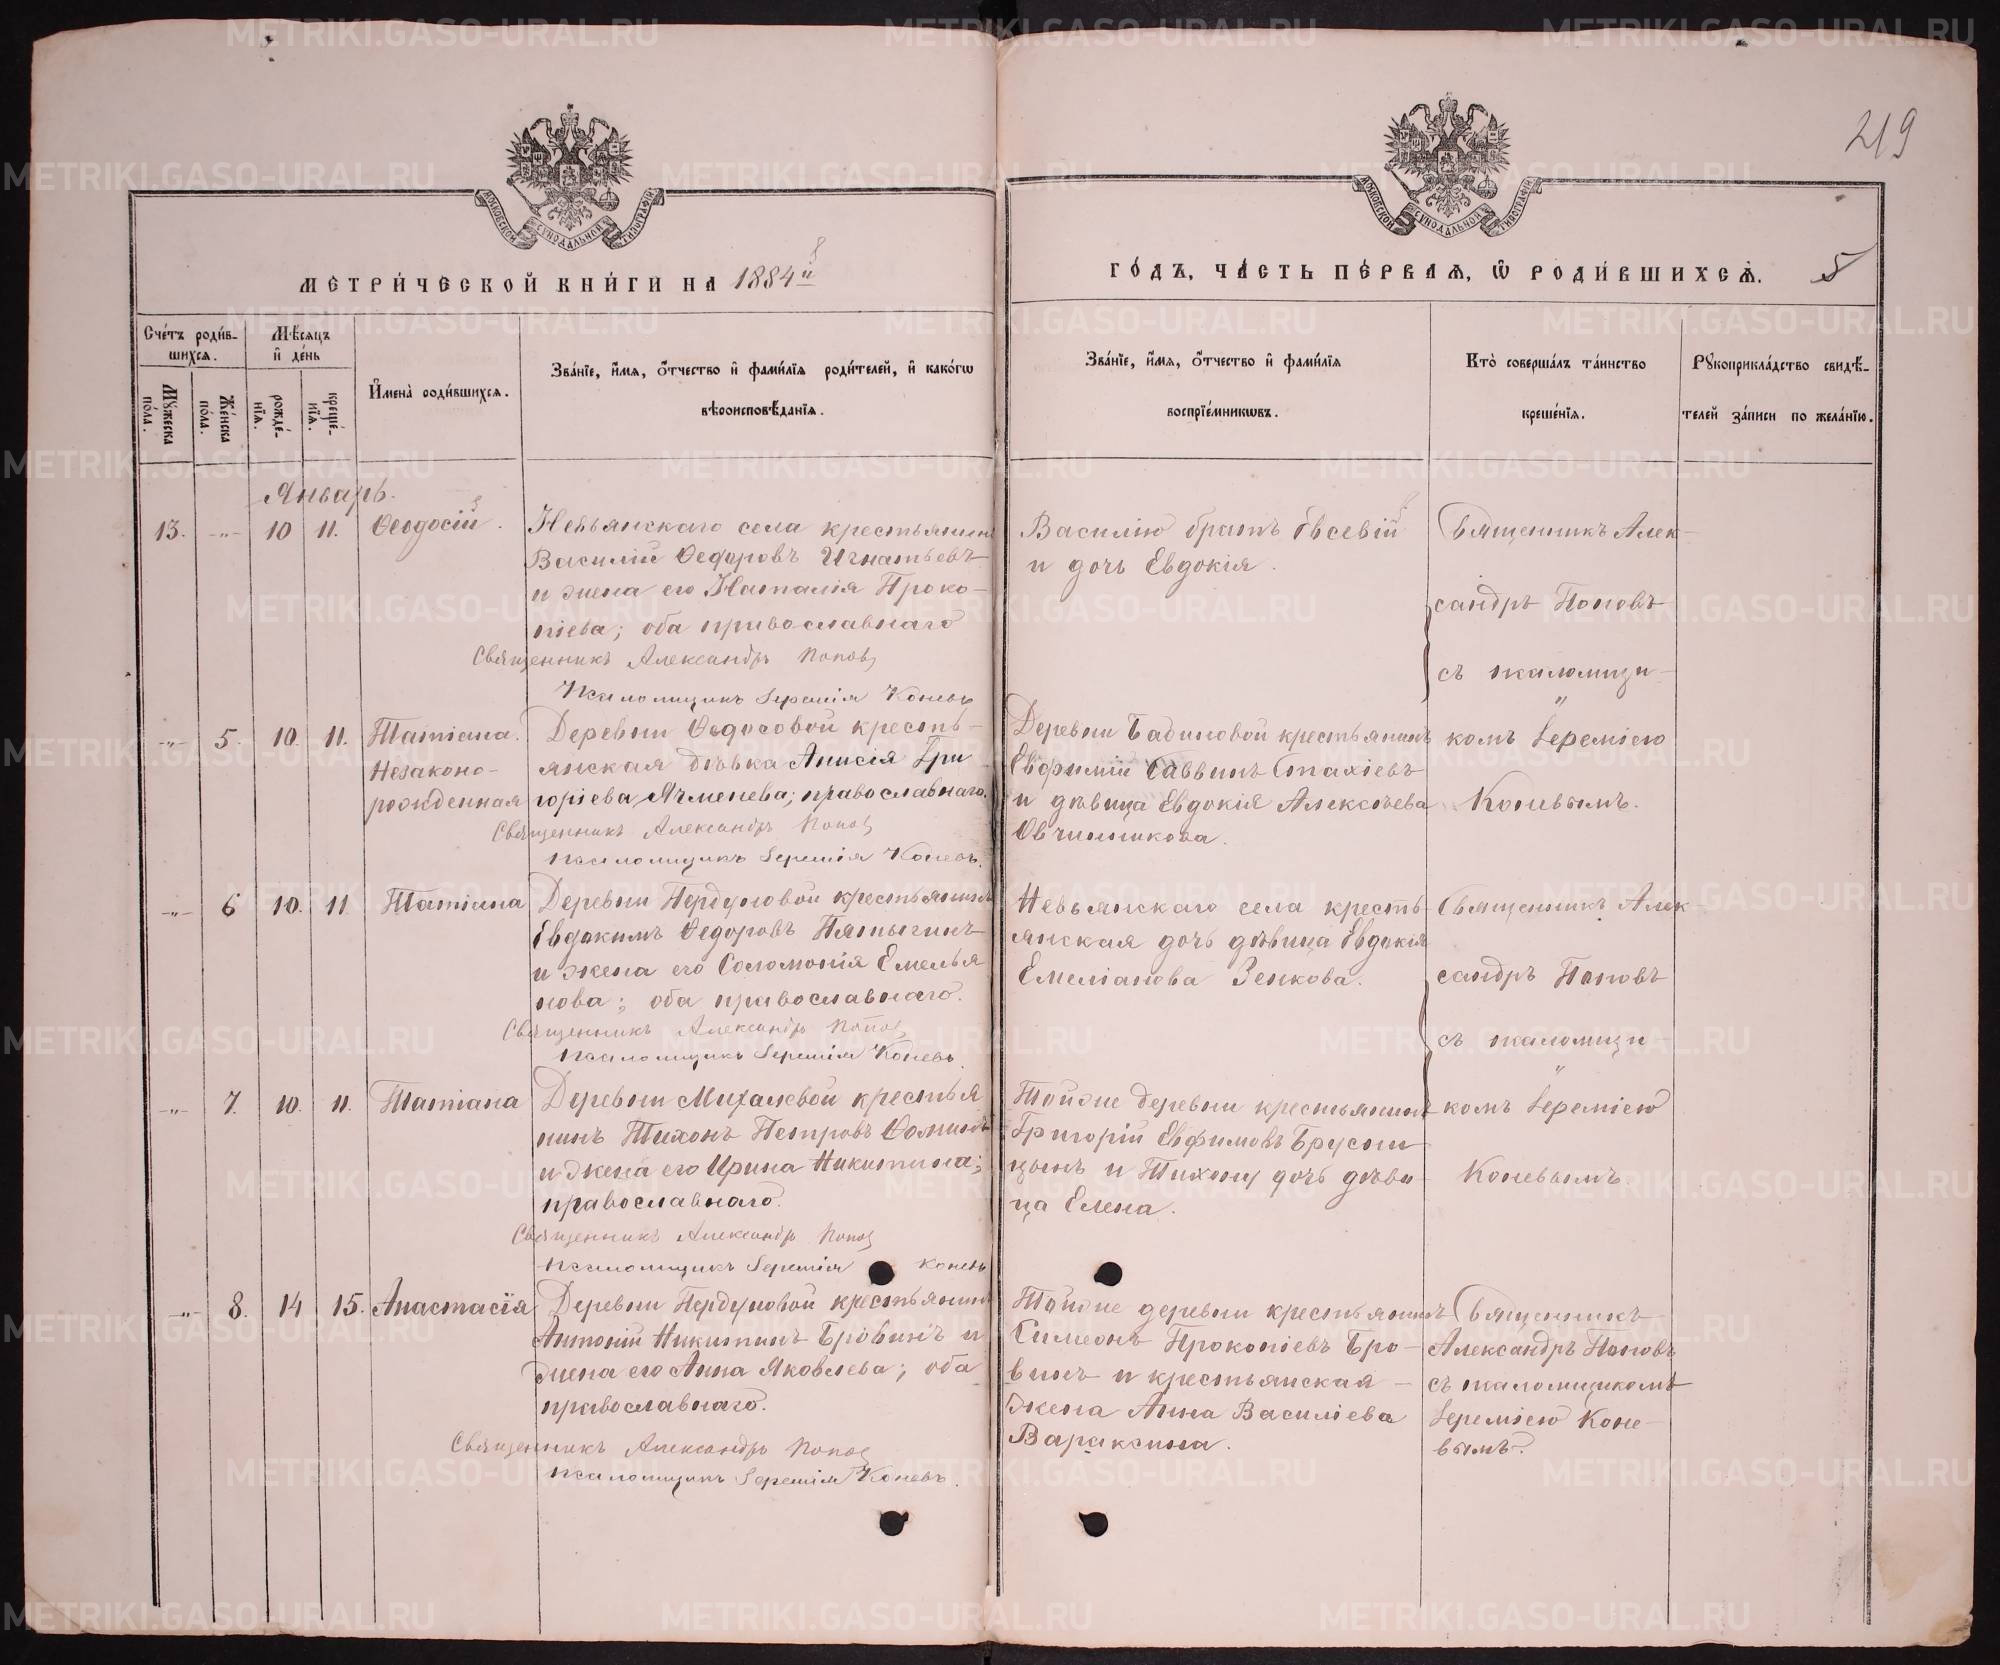 219
МОСКОВСКОЙ СУНОДАЛЬНОЙ ТИПОГРАФІИ
МОСКОВСКОЙ СУНОДАЛЬНОЙ ТИПОГРАФІИ
МЕТРИ́ЧЕСКОЙ КНИ́ГИ НА 1884й
ГО́ДЪ, ЧА́СТЬ ПЕ́РВАЯ, Ѿ РОДИ́ВШИХСѦ.
5
Сче́тъ роди́в-
шихсѧ.
Мꙋ́жеска по́ла.
Же́нска по́ла.
Мѣ́сяцъ
и де́нь
рожде́-
нїѧ.
креще́-
нїѧ.
И҆мена̀ роди́вшихсѧ.
Зва́нїе, и҆́мѧ, ѻ҆́тчество и҆ фами́лїѧ роди́телей, и҆ како́гѡ
вѣроисповѣ́данїѧ.
Зва́нїе, и҆́мѧ, ѻ҆́тчество и҆ фами́лїѧ
воспрїе́мникѡвъ.
Кто̀ соверша́лъ та́инство
креще́нїѧ.
Рꙋкоприкла́дство свидѣ́-
телей за́писи по жела́нїю.
Январь.
13. -"- 10 11. Ѳеодосій.
Невьянскаго села крестьянинъ
Василій Ѳедоровъ Игнатьевъ
и жена его Наталія Проко-
піева; оба православнаго
Священникъ Александръ Попов
Псаломщикъ Іеремія Коневъ
Василію братъ Евсевій
и дочь Евдокія.
Священникъ Алек-
сандръ Поповъ
съ псаломщи-
комъ Іереміею
Коневымъ.
-"- 5. 10. 11. Татіана.
Незаконо-
рожденная
Деревни Ѳедосовой кресть-
янская дѣвка Анисія Гри
горіева Ячменева; православнаго.
Священникъ Александръ Попов
Псаломщикъ Іеремія Коневъ.
Деревни Бадиновой крестьянинъ
Евфимій Саввинъ Стахіевъ
и дѣвица Евдокія Алексѣева
Овчинникова.
-"- 6 10. 11 Татіана
Деревни Пердуновой крестьянинъ
Евдокимъ Ѳедоровъ Пятыгинъ
и жена его Соломонія Емелья
нова; оба православнаго.
Священникъ Александръ Попов
Псаломщикъ Іеремія Коневъ.
Невьянскаго села кресть-
янская дочь дѣвица Евдокія
Емеліанова Зенкова.
Священникъ Алек-
сандръ Поповъ
съ псаломщи-
комъ Іереміею
Коневымъ.
-"- 7. 10. 11. Татіана
Деревни Михалевой крестья
нинъ Тихонъ Петровъ Ѳоминъ
и жена его Ирина Никитина;
православнаго.
Священникъ Александръ Попов
Псаломщикъ Іеремія Коневъ
Тойже деревни крестьянинъ
Григорій Евфимовъ Брусни
цынъ и Тихону дочь дѣви-
ца Елена.
-"- 8. 14 15. Анастасія
Деревни Пердуновой крестьянинъ
Антоній Никитинъ Бровинъ и
жена его Анна Яковлева; оба
православнаго.
Священникъ Александръ Попов
Псаломщикъ Іеремія Коневъ.
Тойже деревни крестьянинъ
Симеонъ Прокопіевъ Бро-
винъ и крестьянская
жена Анна Василіева
Вараксина.
Священникъ
Александръ Поповъ
съ псаломщикомъ
Іереміею Коне-
вымъ.
METRIKI.GASO-URAL.RU